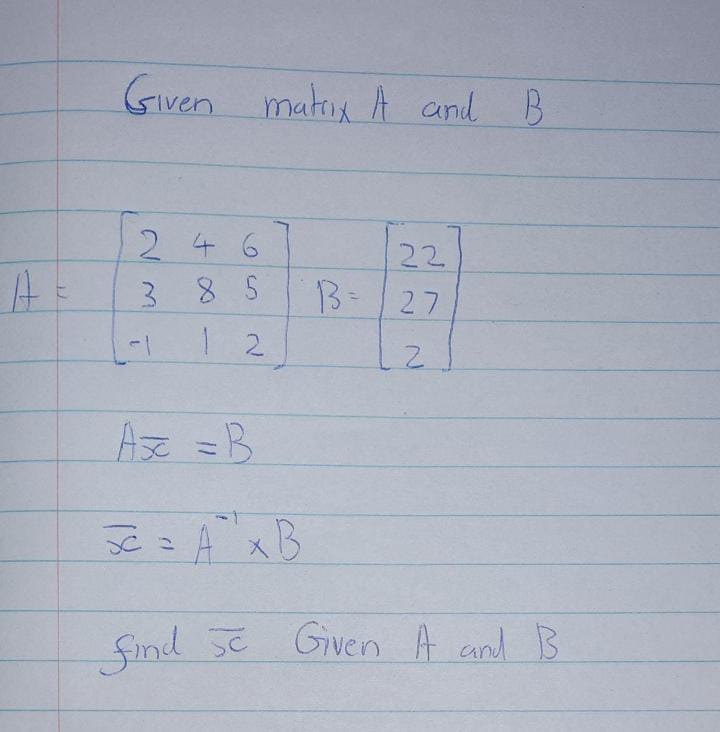 Given matrix A and B
A = [2 4 6
3 8 5
-1 1 2] B = [22
27
2]
Ax̄ = B
x̄ = A⁻¹ × B
find x̄ Given A and B